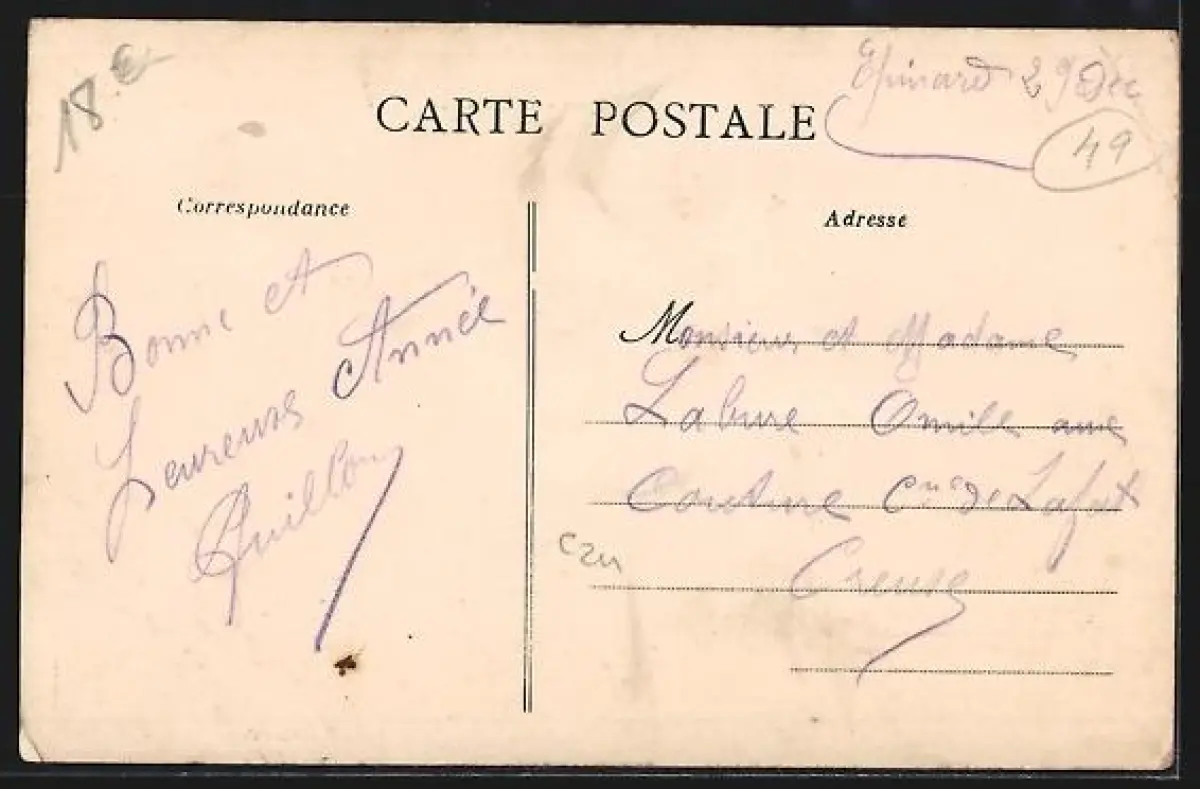 18 €
Epinard 29 Dec
49
CARTE POSTALE
Correspondance
Adresse
Bonne et
heureuse Année
Guillon
Monsieur et Madame
Labure Omille aux
C<sup>ne</sup> de Lafat
Creuse